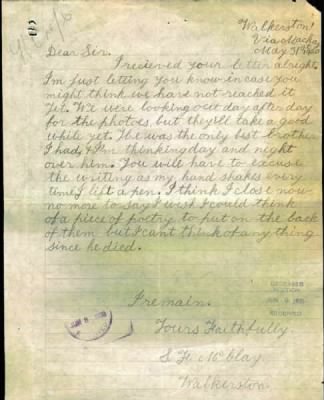 Walkerston
Via Mackay
May 31st
Dear Sir.
I recieved your letter alright.
I'm just letting you know in case you
might think we have not reached it
yet. We were looking out day after day
for the photoes, but they'll take a good
while yet. He was the only best brother
I had, & I'm thinking day and night
over him. You will have to excuse
the writing as my hand shakes every
time I lift a pen. I think I close now
no more to say I wish I could think
of a piece of poetry to put on the back
of them but I cant think of any thing
since he died.
I remain.
Yours Faithfully.
Walkerston
SECTION
RECEIVED